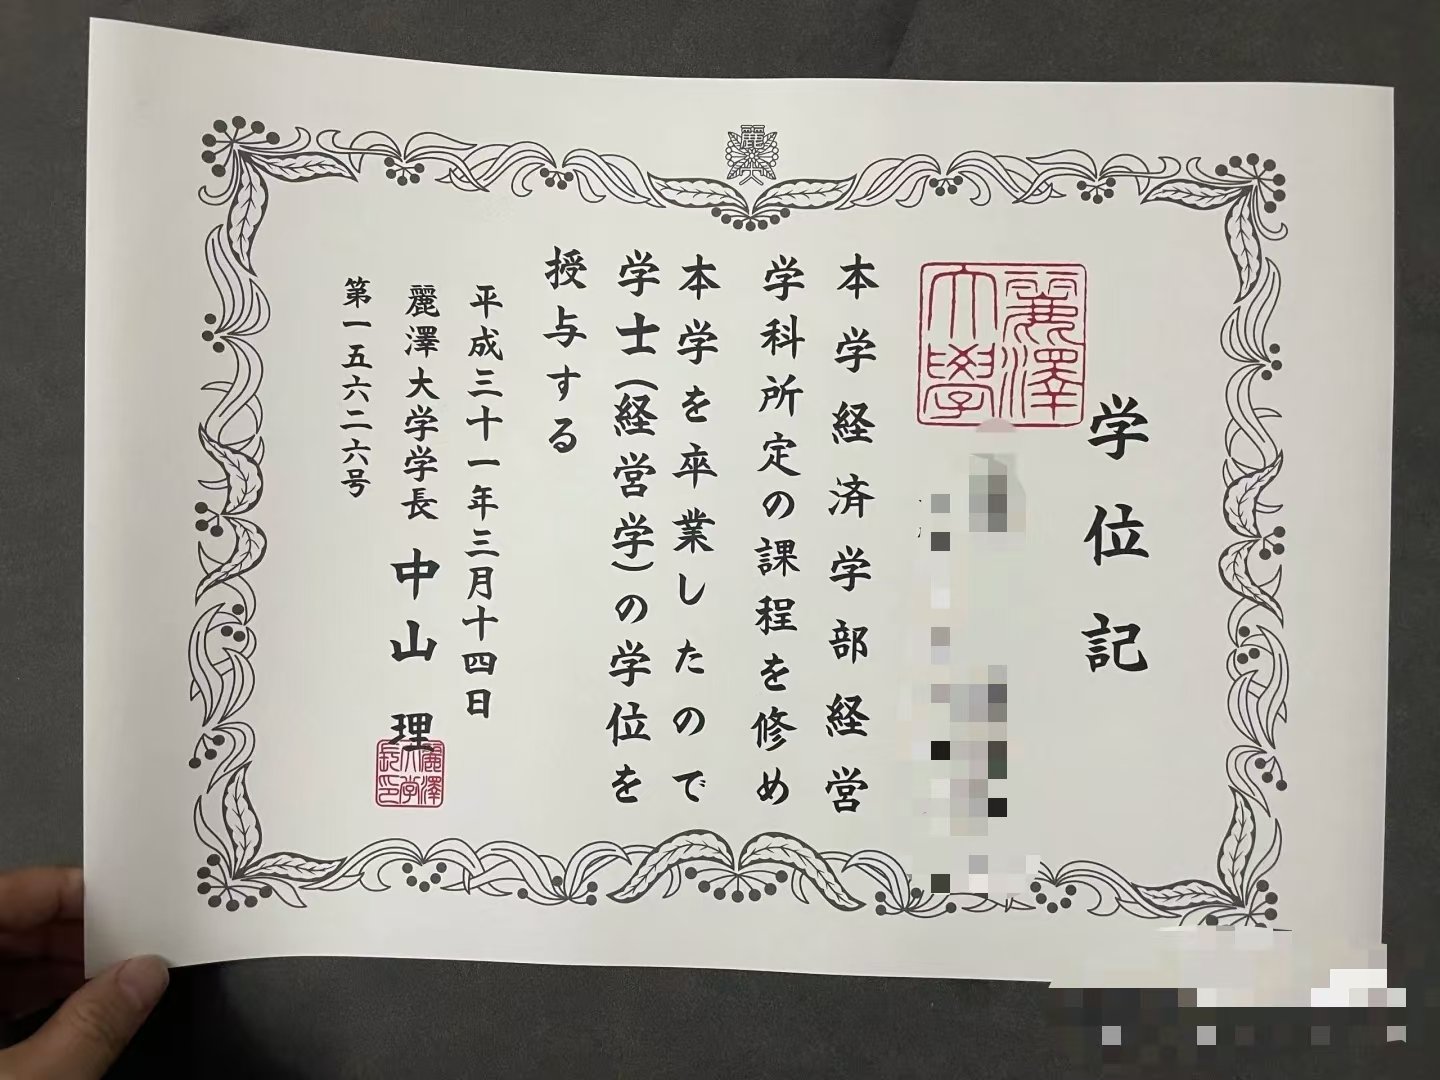 麗大
学位記
麗澤
大學
本学経済学部経営
学科所定の課程を修め
本学を卒業したので
学士(経営学)の学位を
授与する
平成三十一年三月十四日
麗澤大学学長 中山 理
麗澤
大学
長印
第一五六二六号